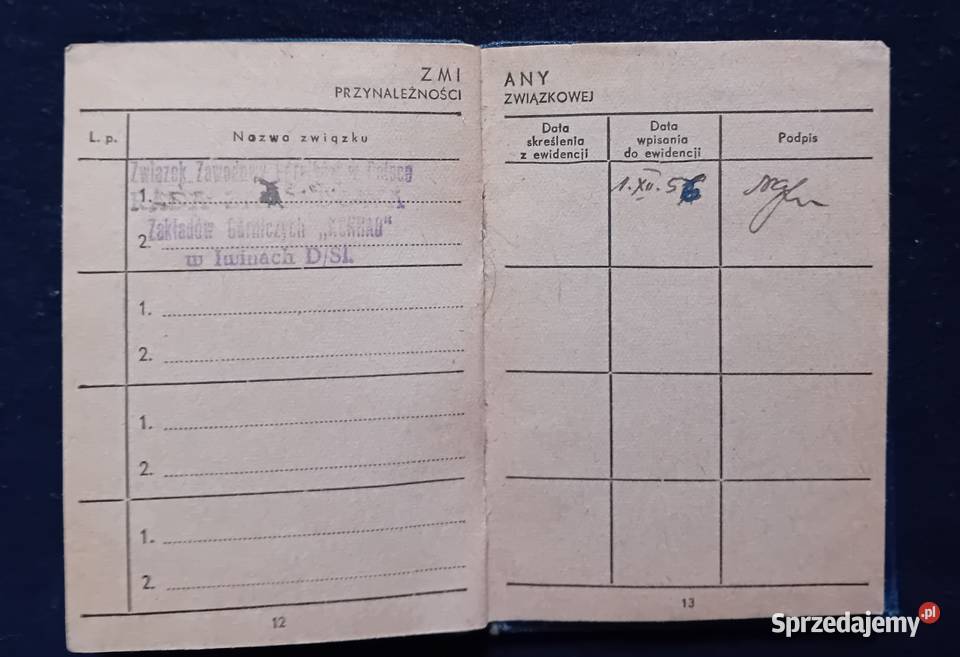 ZMIANY
PRZYNALEŻNOŚCI ZWIĄZKOWEJ
L. p.
Nazwa związku
Data skreślenia z ewidencji
Data wpisania do ewidencji
Podpis
Związek Zawodowy Górników w Polsce
1.
1. XII. 56
Zakładów Górniczych „KONRAD”
2.
w Iwinach D/Śl.
1.
2.
1.
2.
1.
2.
12
13
Sprzedajemy.pl